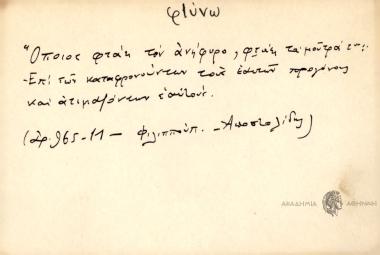 φτύνω
"Όποιος φτάη τὸν ἀνήφυρο, φτάη τὰ μοῦτρά
-Ἐπὶ τῶν καταφρονούντων τοὺς ἑαυτῶν προγόνους
καὶ ἀτιμαζόντων ἑαυτούς.
(ἀρ. 965-11 — Φιλιππούπ. - Ἀποστολίδης)
ΑΚΑΔΗΜΙΑ ΑΘΗΝΩΝ